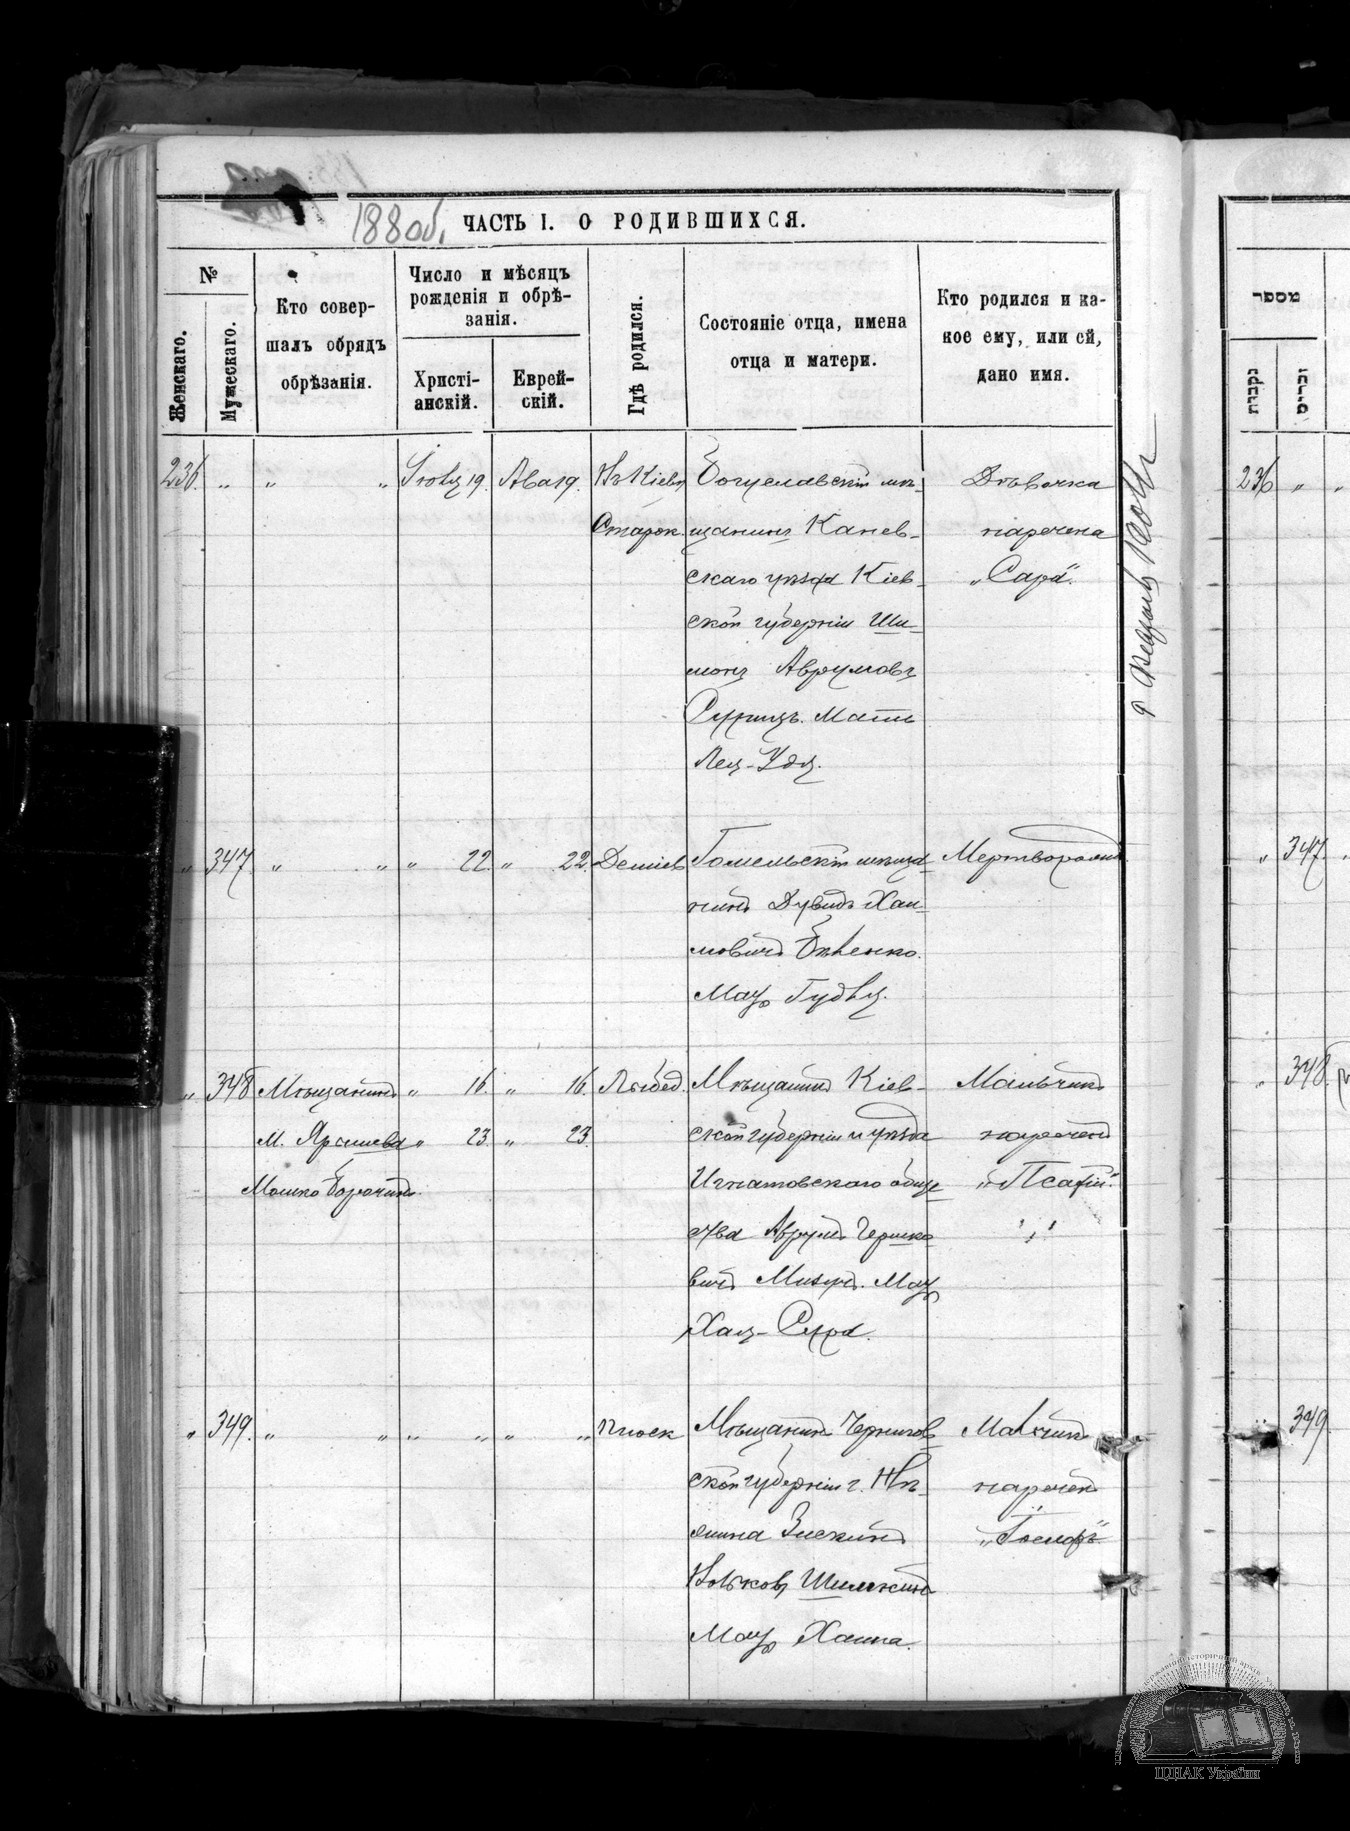 188об.
ЧАСТЬ I. О РОДИВШИХСЯ.
№
Женскаго.
Мужескаго.
Кто совер-
шалъ обрядъ
обрѣзанія.
Число и мѣсяцъ
рожденія и обрѣ-
занія.
Христі-
анскій.
Еврей-
скій.
Гдѣ родился.
Состояніе отца, имена
отца и матери.
Кто родился и ка-
кое ему, или ей,
дано имя.
236. " " " Іюля 19. Ава 19.
Въ Кіевѣ
Старок.
Богуславскій мѣ-
щанинъ Канев-
скаго уѣзда Кіев-
ской губерніи Ши-
монъ Аврумовъ
Мать
Лея-Удя.
Дѣвочка
наречена
„Сара".
" 347. " " " 22. " 22.
Деміев
Гомельскій мѣща-
нинъ Дувидъ Хаи-
мовичъ
Мать
Мертворожд.
" 348 Мѣщанинъ " 16. " 16. Лыбед.
М. " 23. " 23.
Мошко
Мѣщанинъ Кіев-
ской губерніи и уѣзда
Игнатовскаго обще-
ства Аврумъ Гершко-
вичъ Мать
Хая-Сура.
Мальчикъ
нареченъ
" 349. " " " " " " Плоск
Мѣщанинъ Чернигов-
ской губерніи г. Нѣ-
жина Зискинъ
Шимкинъ
Мать Ханна.
Мальчикъ
нареченъ
„Іосифъ"
מספר
נקבות
זכרים
236 " "
" 347. "
" 348.
" 349.
ЦДІАК України